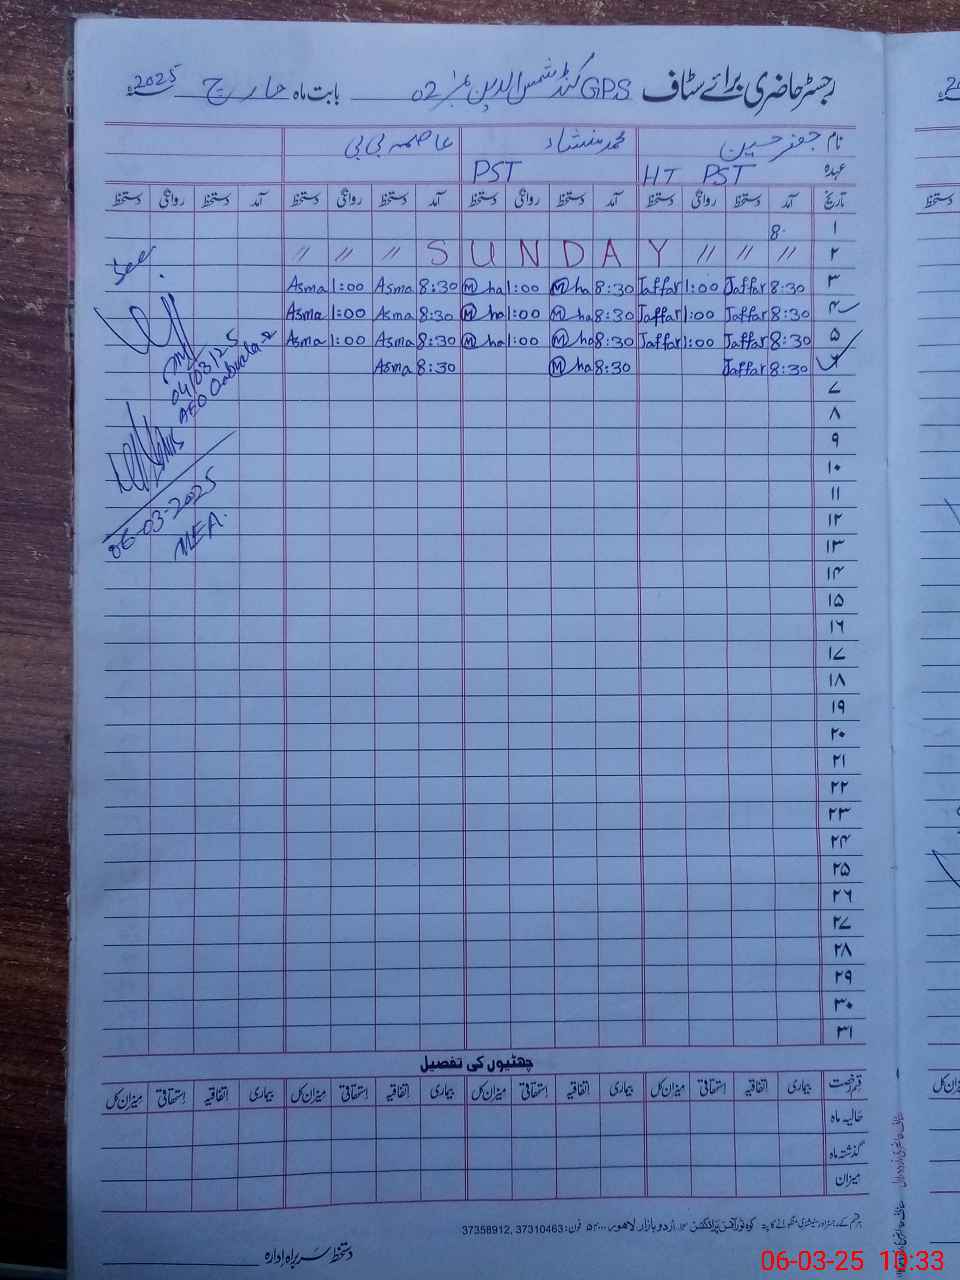 رجسٹر حاضری برائے سٹاف GPS کنڈ شمس الدین نمبر 02 بابت ماہ مارچ 2025ء
نام جعفر حسین محمد منشاد عاصمہ بی بی
عہدہ HT PST PST
تاریخ آمد دستخط روانگی دستخط آمد دستخط روانگی دستخط آمد دستخط روانگی دستخط آمد دستخط روانگی دستخط
۱ 8.
۲ // // // S U N D A Y // // //
۳ 8:30 Jaffar 1:00 Jaffar 8:30 Ⓜ ha 1:00 Ⓜ ha 8:30 Asma 1:00 Asma
۴ 8:30 Jaffar 1:00 Jaffar 8:30 Ⓜ ha 1:00 Ⓜ ha 8:30 Asma 1:00 Asma
۵ 8:30 Jaffar 1:00 Jaffar 8:30 Ⓜ ha 1:00 Ⓜ ha 8:30 Asma 1:00 Asma
۶ 8:30 Jaffar 8:30 Ⓜ ha 8:30 Asma
۷
۸
۹
۱۰
۱۱
۱۲
۱۳
۱۴
۱۵
۱۶
۱۷
۱۸
۱۹
۲۰
۲۱
۲۲
۲۳
۲۴
۲۵
۲۶
۲۷
۲۸
۲۹
۳۰
۳۱
See.
04/03/25
AEO
06-03-2025
MEA.
چھٹیوں کی تفصیل
قسم رخصت بیماری اتفاقیہ استحقاقی میزان کل بیماری اتفاقیہ استحقاقی میزان کل بیماری اتفاقیہ استحقاقی میزان کل بیماری اتفاقیہ استحقاقی میزان کل
حالیہ ماہ
گذشتہ ماہ
میزان
اردو بازار لاہور فون: 37310463, 37358912
دستخط سربراہ ادارہ
06-03-25 10:33